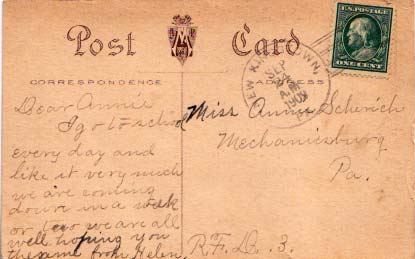 Post Card
CORRESPONDENCE
ADDRESS
Dear Annie
I go to school
every day and
like it very much
we are coming
down in a week
or two we are all
well hoping you
the same from Helen
NEW KINGSTOWN,
SEP
ONE CENT
Miss Annie Scherich
Mechanicsburg
Pa.
R.F.D. 3.